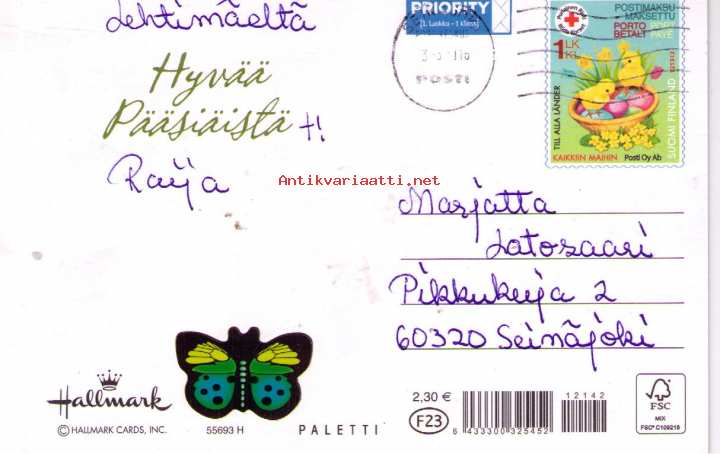 Lehtimäeltä
Hyvää
Pääsiäistä +!
Raija
PRIORITY
[1. Luokka - 1 klass]
POSTI
POSTIMAKSU
MAKSETTU
PORTO PORT
BETALT PAYÉ
1 LK
KL
TILL ALLA LÄNDER
SUOMI FINLAND
KAIKKIIN MAIHIN Posti Oy Ab
Antikvariaatti.net
Marjatta
Latosaari
Pikkukuja 2
60320 Seinäjoki
Hallmark
© HALLMARK CARDS, INC.
55693 H
PALETTI
2,30 €
F23
12142
6 433300 325452
FSC
MIX
FSC® C109218